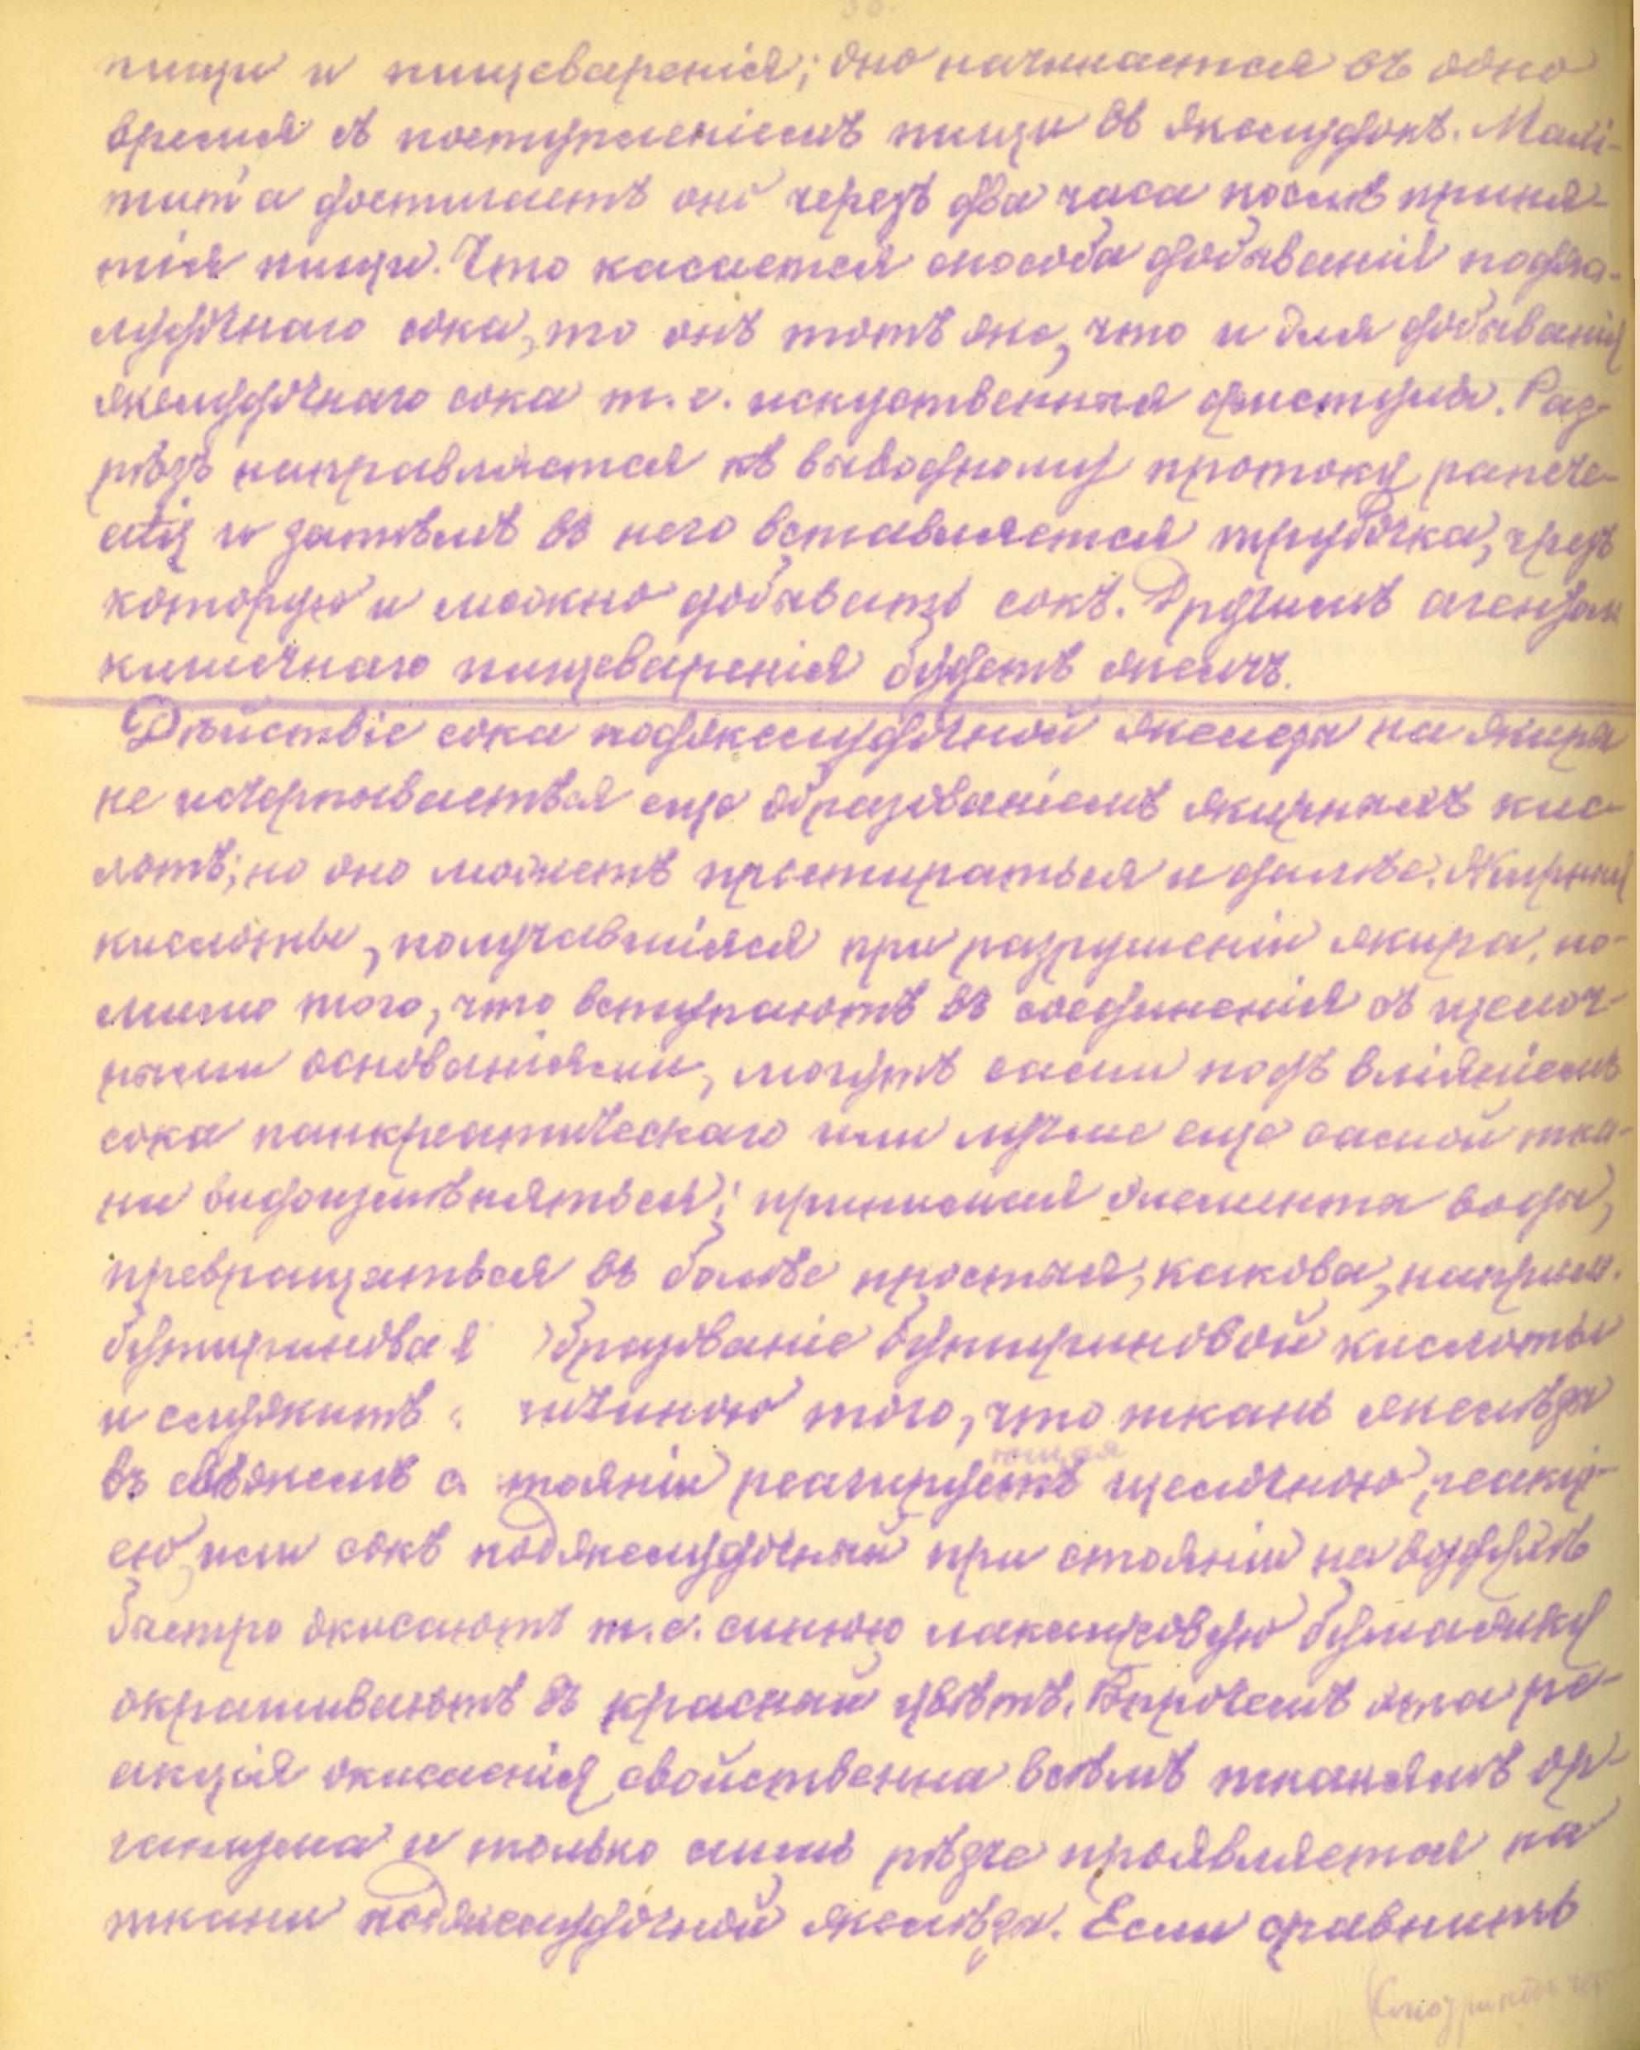 пищи и пищеваренія; оно начинается въ одно
время съ поступленіемъ пищи въ желудокъ. Макси-
мума достигаетъ оно черезъ два часа послѣ приня-
тія пищи. Что касается способа добыванія поджо-
лудочнаго сока, то онъ тотъ же, что и для добыванія
желудочнаго сока т.е. искуственная фистула. Раз-
рѣзъ направляется къ выводному протоку panere-
atis и затѣмъ въ него вставляется трубочка, чрезъ
которую и можно добывать сокъ. Другимъ агентом
кишечнаго пищеваренія будетъ желчь.
Дѣйствіе сока поджелудочной железы на жиры
не исчерпывается еще образованіемъ жирныхъ кис-
лотъ; но оно можетъ простираться и далѣе. Жирныя
кислоты, получавшіяся при разрушеніи жира, по-
мимо того, что вступаютъ въ соединенія съ щелоч-
ными основаніями, могутъ сами подъ вліяніемъ
сока панкреатическаго или лучше еще самой тка-
ни видоизмѣняться; принимая элемента воды,
превращаться въ болѣе простыя, какова, наприм.
бутириновая Образованіе бутириновой кислоты
и служитъ чиною того, что ткань железы
въ свѣжемъ с тояніи реагируетъ ющая щелочною реакці-
ею, или сокъ поджелудочный при стояніи на воздухѣ
быстро окисаютъ т.е. синюю лакмусовую бумажку
окрашиваютъ въ красный цвѣтъ. Впрочемъ эта ре-
акція окисленія свойственна всѣмъ тканямъ ор-
ганизма и только лишь рѣзче проявляется на
ткани поджелудочной железы. Если сравнить